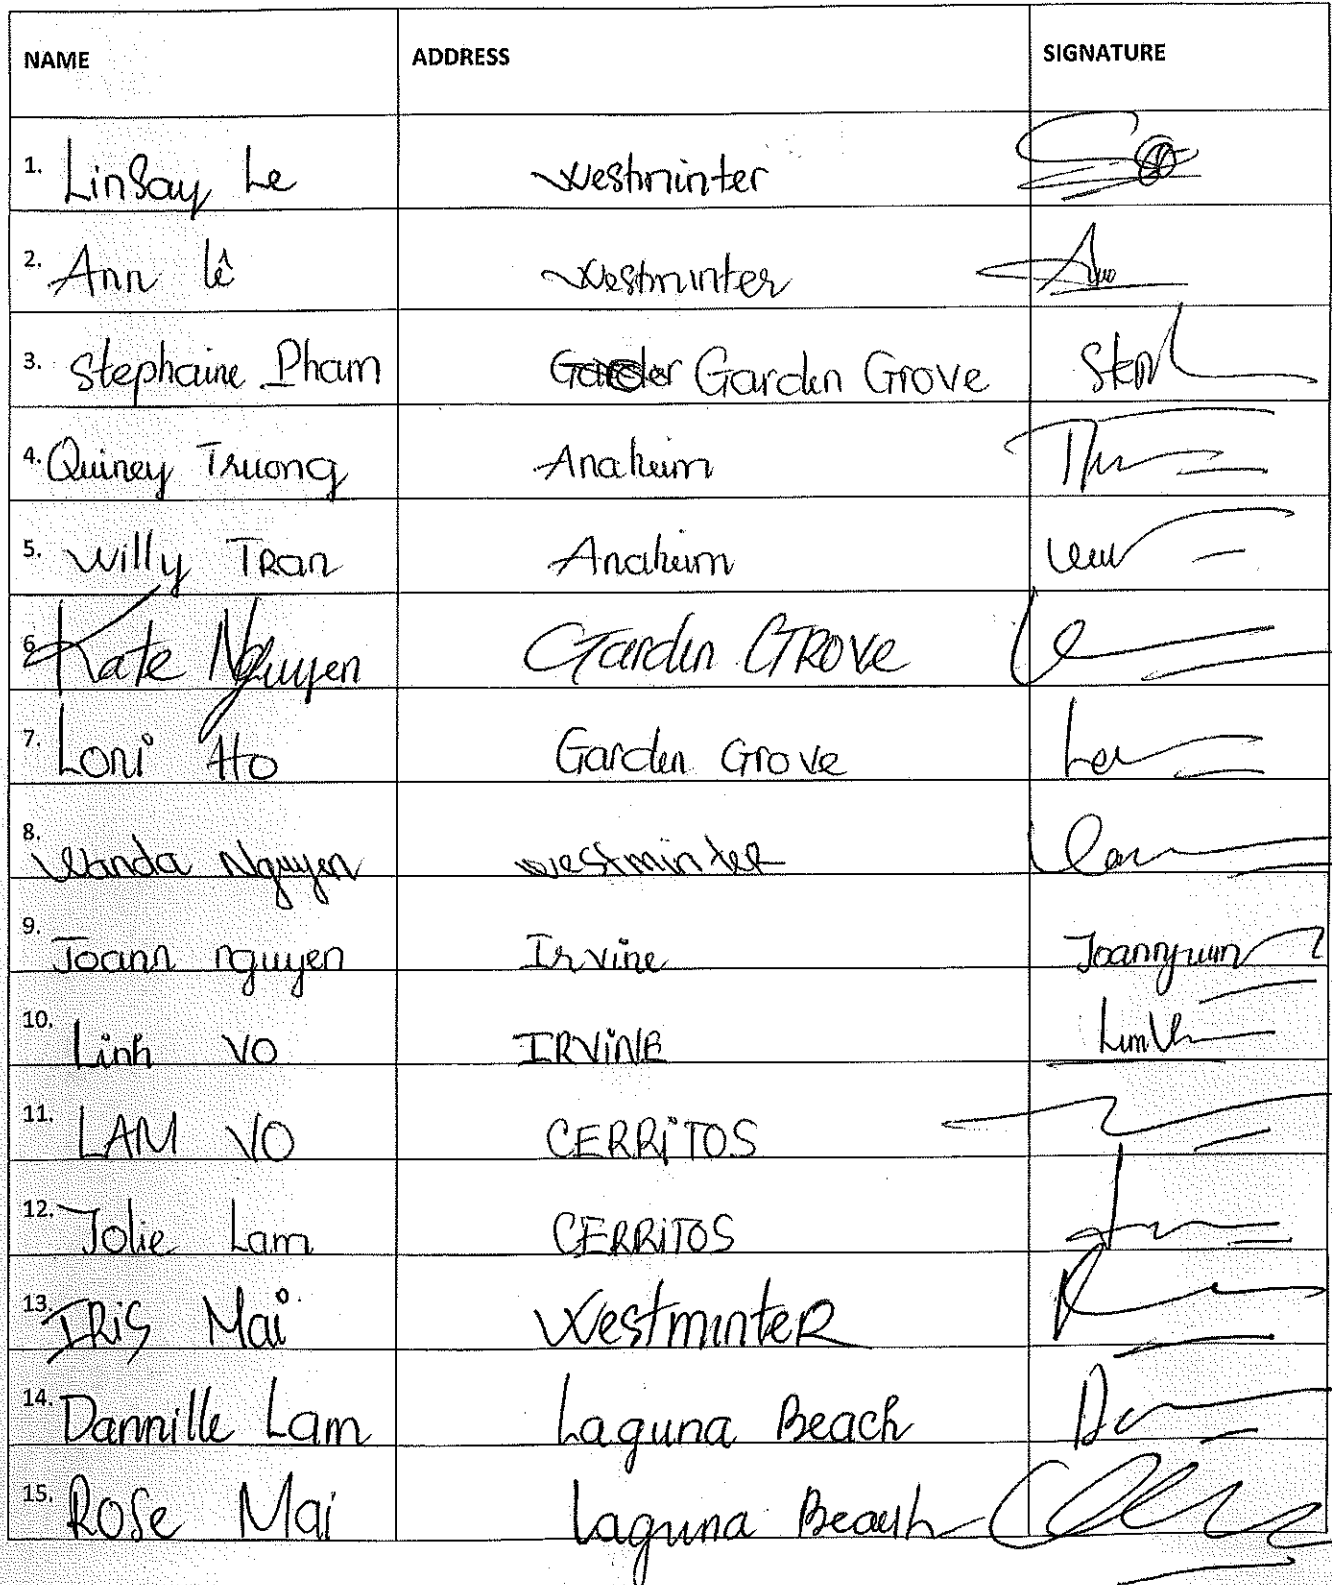 NAME ADDRESS SIGNATURE
1. Linsay Le Westminter
2. Ann Lê Westminter
3. Stephaine Pham Garden Grove
4. Quincy Truong Anaheim
5. Willy Tran Anaheim
6. Kate Nguyen Garden Grove
7. Loni Ho Garden Grove
8. Wanda Nguyen Westminter
9. Joann nguyen Irvine
10. Linh Vo IRVINE
11. LAM VO CERRiTOS
12. Jolie Lam CERRiTOS
13. IRiS Mai WestminteR
14. Dannille Lam Laguna Beach
15. Rose Mai Laguna Beach